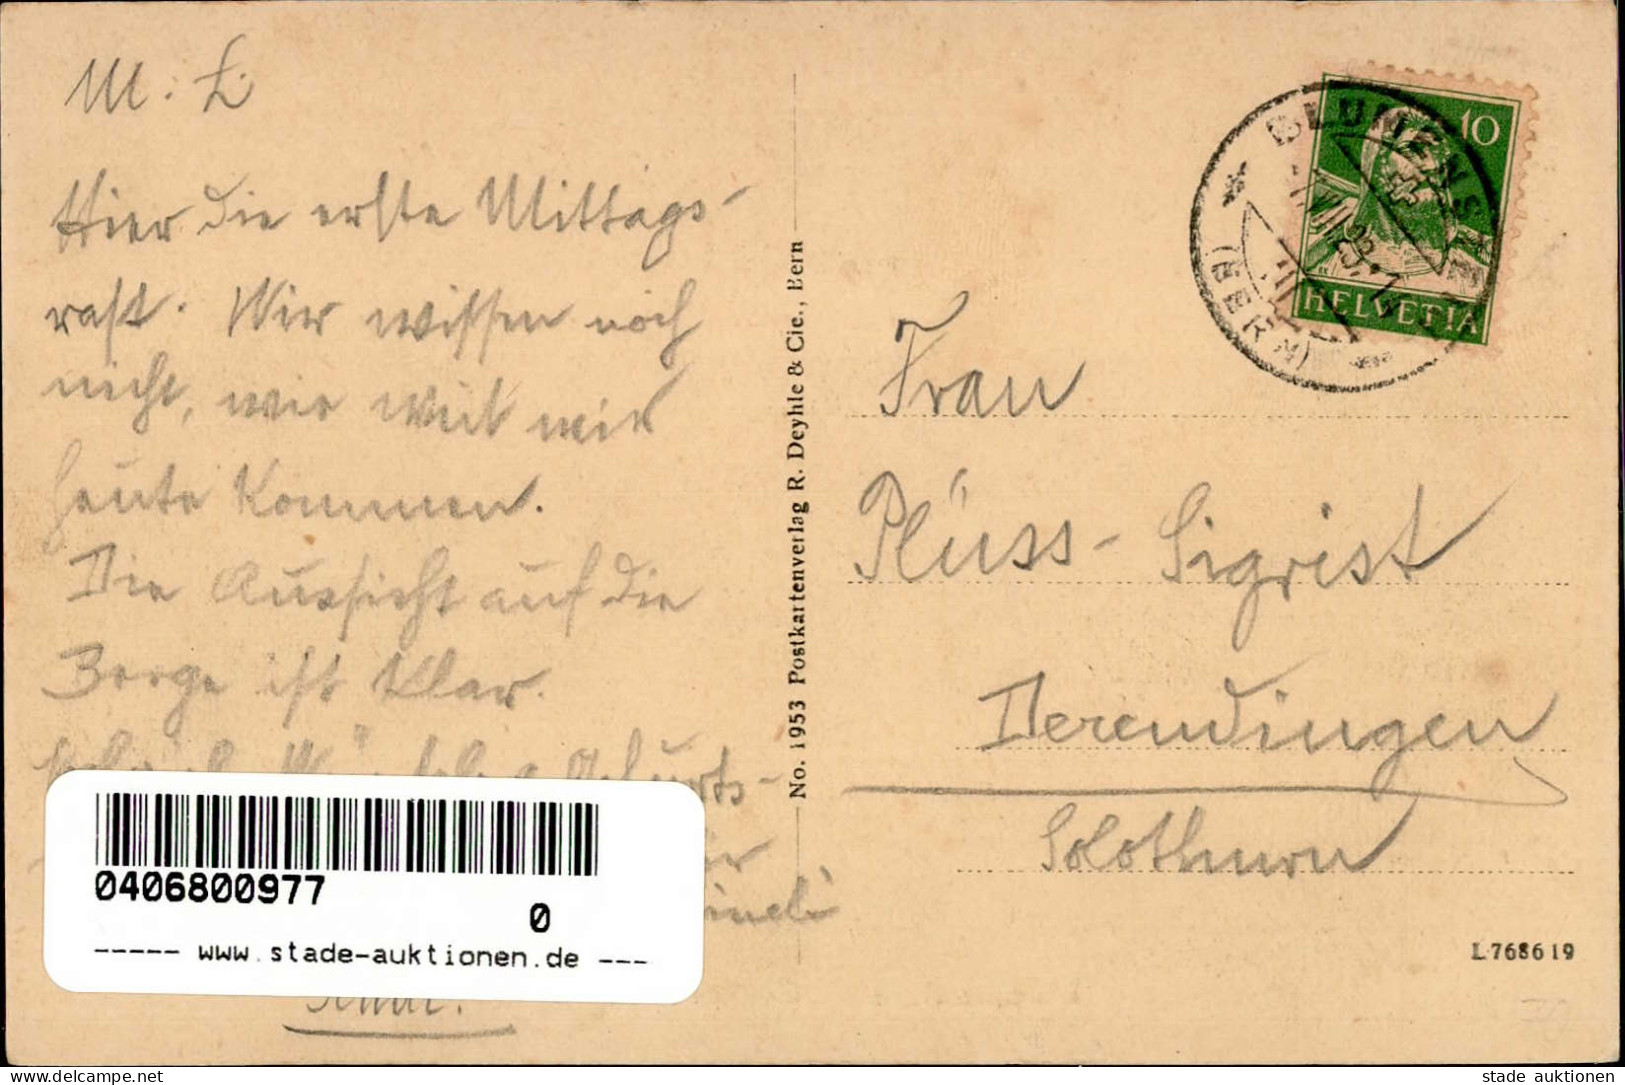 M. L.
Hier die erste Mittags-
rast. Wir wissen noch
nicht, wie weit wir
heute kommen.
Die Aussicht auf die
Berge ist klar.
Geburts-
0406800977
0
----- www.stade-auktionen.de ---
No. 1953 Postkartenverlag R. Deyhle & Cie., Bern
10
HELVETIA
BLUMENSTEIN
(BERN)
Frau
Plüss-Sigrist
Derendingen
Solothurn
L 768619
www.delcampe.net
stade auktionen